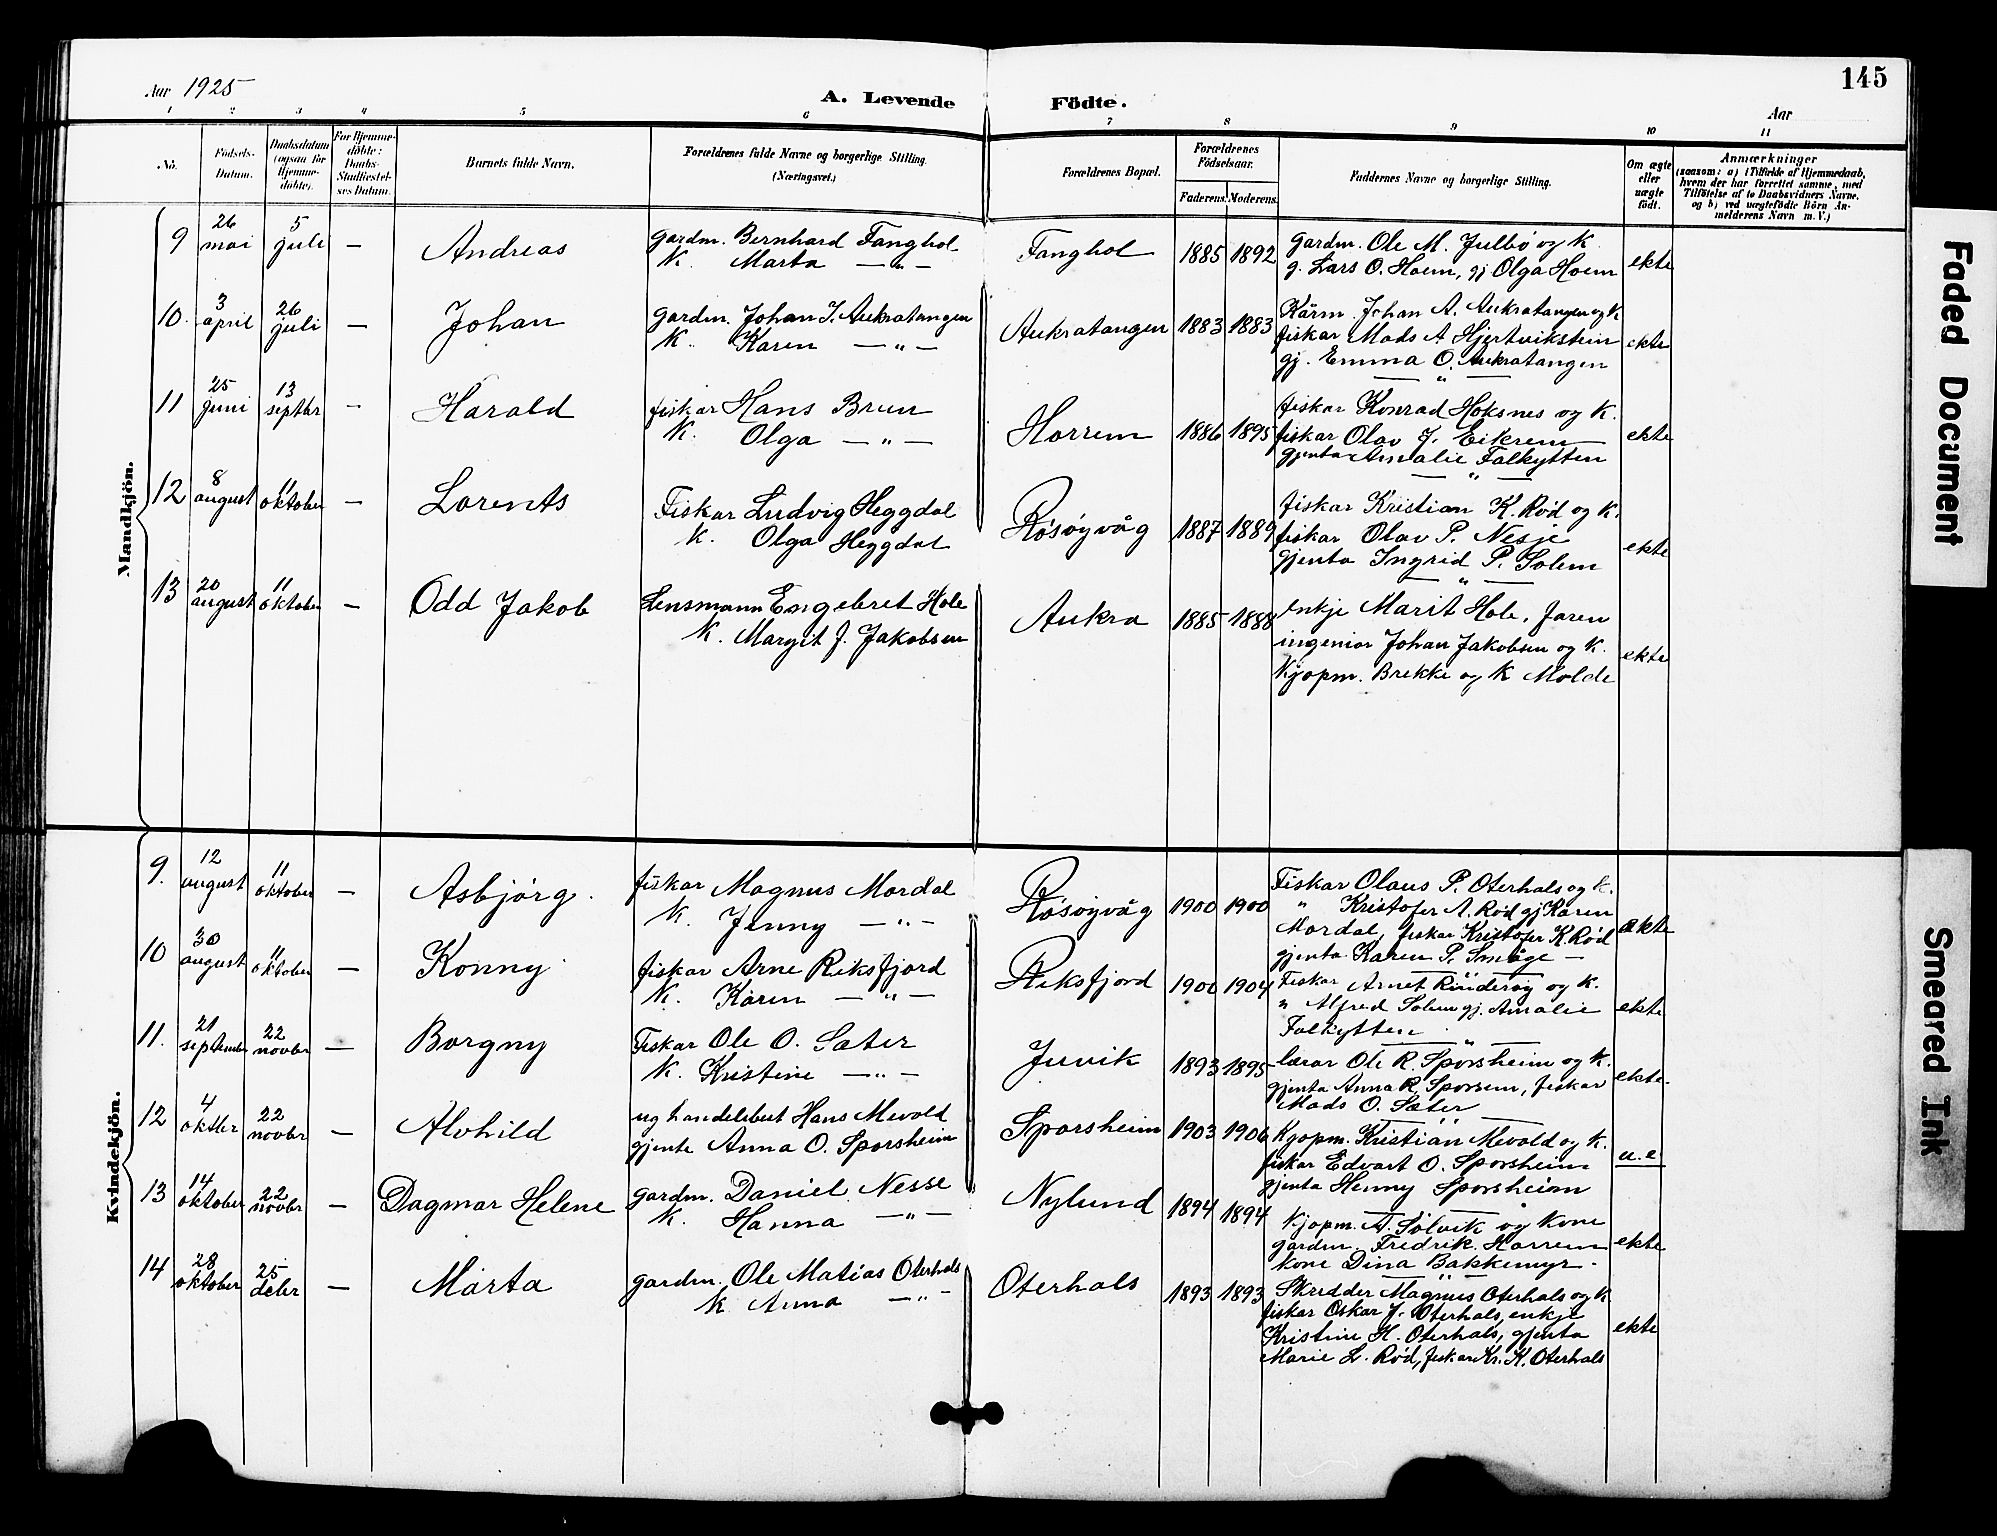 145
Aar 1925
A. Levende Födte.
Aar
1 2 3 4 5 6 7 8 9 10 11
No.
Födsels-Datum.
Daabsdatum (ogsaa for Hjemme-döbte).
For Hjemme-döbte: Daabs-Stadfæstel-ses Datum.
Barnets fulde Navn.
Forældrenes fulde Navne og borgerlige Stilling.
(Næringsvei.)
Forældrenes Bopæl.
Forældrenes Födselsaar.
Faderens. Moderens.
Faddernes Navne og borgerlige Stilling.
Om ægte eller uægte födt.
Anmærkninger
(saasom: a) i Tilfælde af Hjemmedaab, hvem der har forrettet samme, med Tilföielse af to Daabsvidners Navne, og b) ved uægtefödte Börn An-melderens Navn m. V.)
Mandkjön.
9 26 mai 5 juli — Andreas gardm. Bernhard Fanghol Fanghol 1885 1892 gardm. Ole M. Julbø og K. ekte
K. Marta — „ — g. Lars O. Hoem, gj Olga Hoem
10. 3 april 26 juli — Johan gardm. Johan J. Aukratangen Aukratangen 1883 1883 Kårm. Johan A. Aukratangen og K ekte
K. Karen — „ — fiskar Mads A Hjertvikstein
gj. Emma O. Aukratangen
— „ —
11 25 juni 13 septbr — Harald fiskar Hans Brun Horrem 1886 1895 fiskar Konrad Hoksnes og K. ekte
K. Olga — „ — fiskar Olav J. Eikrem
gjenta Amalie Falkytten
— „ —
12 8 august 11 oktober — Lorents Fiskar Ludvig Heggdal Røsøyvåg 1887 1889 fiskar Kristian K. Rød og K. ekte
K. Olga Heggdal fiskar Olav P. Nesje
gjenta Ingrid P. Solem
— „ —
13 20 august 11 oktober — Odd Jakob Lensmann Engebret Hole Aukra 1885 1888 enkje Marit Hole, Jaren ekte
K. Margit J. Jakobsen ingeniør Johan Jakobsen og K.
Kjøpm. Brekke og K Molde
Kvindekjön.
9. 12 august 11 oktober — Asbjørg. fiskar Magnus Mordal Røsøyvåg 1900 1900 Fiskar Olaus P. Oterhals og K. ekte
K. Jenny — „ — „ Kristofer A. Rød gj Karen
Mordal, fiskar Kristofer K. Rød
gjenta Karen P. Småge —
10 30 august 11 oktober — Konny fiskar Arne Riksfjord Riksfjord 1900 1904 Fiskar Arnet Rinderøy og K. ekte
K. Karen — „ — „ Alfred Solem gj. Amalie
Falkytten
11. 21 september 22 novbr — Borgny Fiskar Ole O. Sæter Juvik 1893 1895 lærar Ole R. Sporsheim og K. ekte.
K. Kristine — „ — gjenta Anna R. Sporsem, fiskar
Mads O. Sæter
12 4 oktbr 22 novbr — Alvhild ug handelsbest Hans Mevold Sporsheim 1903 1906 Kjøpm. Kristian Mevold og K. u. e
gjenta Anna O. Sporsheim fiskar Edvart O. Sporsheim
gjenta Henny Sporsheim
13 14 oktober 22 novbr — Dagmar Helene gardm. Daniel Nesse Nylund 1894 1894 Kjøpm. A. Solvik og kone ekte
K. Hanna — „ — gardm. Fredrik Horrem
kone Dina Bakkemyr.
14 28 oktober 25 decbr — Marta gardm. Ole Matias Oterhals Oterhals 1893 1893 Skredder Magnus Oterhals og K ekte
K Anna — „ — fiskar Oskar J. Oterhals, enkje
Kristine H. Oterhals, gjenta
Marie L. Rød, fiskar Kr. K. Oterhals
Faded Document
Smeared Ink